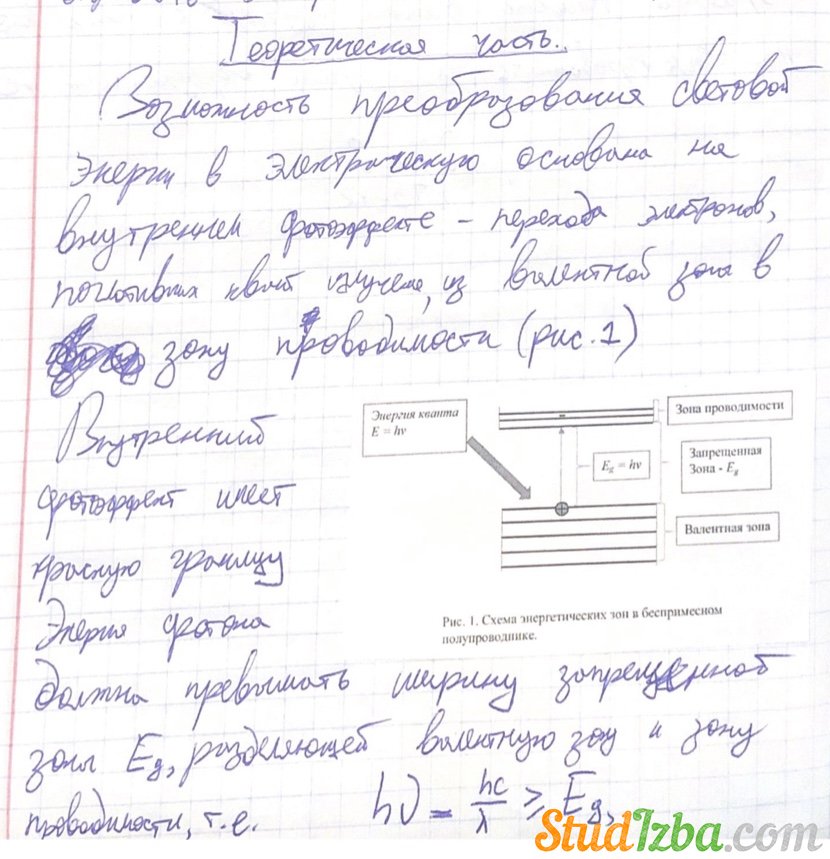 Теоретическая часть.
Возможность преобразования световой
энергии в электрическую основана на
внутреннем фотоэффекте – перехода электронов,
поглотивших квант излучения, из валентной зоны в
зону проводимости (рис. 1)
Внутренний
фотоэффект имеет
красную границу
Энергия фотона
должна превышать ширину запрещенной
зоны Eg, разделяющей валентную зону и зону
проводимости, т.е. hν = hc/λ ≥ Eg,
Энергия кванта
E = hν
Зона проводимости
Eg = hν
Запрещенная
Зона - Eg
Валентная зона
Рис. 1. Схема энергетических зон в беспримесном
полупроводнике.
StudIzba.com